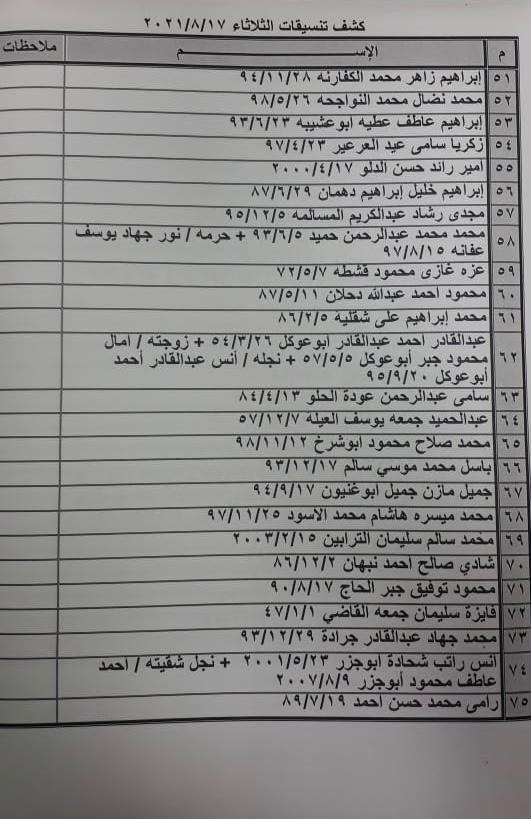 كشف تنسيقات الثلاثاء ٢٠٢١/٨/١٧
م الإســـــــــــــم ملاحظات
٥١ إبراهيم زاهر محمد الكفارنه ٩٤/١١/٢٨
٥٢ محمد نضال محمد النواجحه ٩٨/٥/٢٦
٥٣ إبراهيم عاطف عطيه ابوعشيبه ٩٣/٦/٢٣
٥٤ زكريا سامى عيد العرعير ٩٧/٤/٢٣
٥٥ امير رائد حسن الدلو ٢٠٠٠/٤/١٧
٥٦ إبراهيم خليل إبراهيم دهمان ٨٧/٦/٢٩
٥٧ مجدى رشاد عبدالكريم المسالمه ٩٥/١٢/٥
٥٨ محمد محمد عبدالرحمن حميد ٩٣/٦/٥ + حرمه / نور جهاد يوسف
عفانه ٩٧/٨/١٥
٥٩ عزه غازى محمود قشطه ٧٢/٥/٧
٦٠ محمود احمد عبدالله دحلان ٨٧/٥/١١
٦١ محمد إبراهيم على شقلية ٨٦/٢/٥
٦٢ عبدالقادر احمد عبدالقادر ابوعوكل ٥٤/٣/٢٦ + زوجته / امال
محمود جبر أبوعوكل ٥٧/٥/٥ + نجله / أنس عبدالقادر أحمد
أبوعوكل ٩٥/٩/٢٠
٦٣ سامى عبدالرحمن عودة الحلو ٨٤/٤/١٣
٦٤ عبدالحميد جمعه يوسف العيله ٥٧/١٢/٧
٦٥ محمد صلاح محمود ابوشرخ ٩٨/١١/١٢
٦٦ باسل محمد موسي سالم ٩٣/١٢/١٧
٦٧ جميل مازن جميل ابوغنيون ٩٤/٩/١٧
٦٨ محمد ميسره هاشام محمد الاسود ٩٧/١١/٢٥
٦٩ محمد سالم سليمان الترابين ٢٠٠٣/٢/١٥
٧٠ شادي صالح احمد نبهان ٨٦/١٢/٢
٧١ محمود توفيق جبر الحاج ٩٠/٨/١٧
٧٢ فايزة سليمان جمعه القاضي ٤٧/١/١
٧٣ محمد جهاد عبدالقادر جرادة ٩٣/١٢/٢٩
٧٤ انس راتب شحادة ابوجزر ٢٠٠١/٥/٢٣ + نجل شقيته / احمد
عاطف محمود أبوجزر ٢٠٠٧/٨/٩
٧٥ رامى محمد حسن احمد ٨٩/٧/١٩